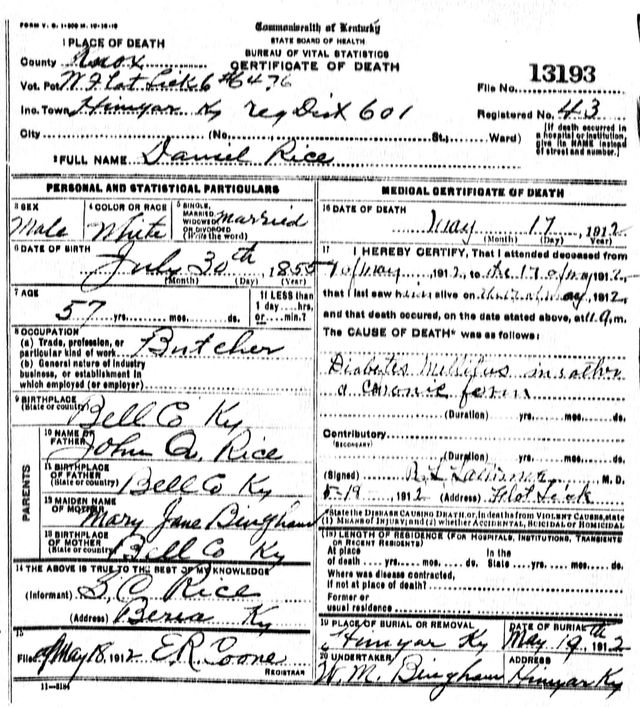 FORM V. S. 1-500 M. 10-16-10
Commonwealth of Kentucky
STATE BOARD OF HEALTH
BUREAU OF VITAL STATISTICS
CERTIFICATE OF DEATH
1 PLACE OF DEATH
County Knox
Vot. Pct. W Flat Lick 6 #6476
Inc. Town Himyar Ky reg Dist 601
City (No. St.; Ward)
File No. 13193
Registered No. 43
[If death occurred in a hospital or institution, give its NAME instead of street and number.]
2 FULL NAME Daniel Rice
PERSONAL AND STATISTICAL PARTICULARS
3 SEX
Male
4 COLOR OR RACE
White
5 SINGLE, MARRIED, WIDOWED OR DIVORCED (Write the word)
married
6 DATE OF BIRTH
July 30th 1855
(Month) (Day) (Year)
7 AGE
57 yrs. mos. ds.
If LESS than 1 day hrs. or min.?
8 OCCUPATION
(a) Trade, profession, or particular kind of work Butcher
(b) General nature of industry business, or establishment in which employed (or employer)
9 BIRTHPLACE
(State or country) Bell Co Ky
PARENTS
10 NAME OF FATHER John A. Rice
11 BIRTHPLACE OF FATHER (State or country) Bell Co Ky
12 MAIDEN NAME OF MOTHER Mary Jane Bingham
13 BIRTHPLACE OF MOTHER (State or country) Bell Co Ky
14 THE ABOVE IS TRUE TO THE BEST OF MY KNOWLEDGE
(Informant) Rice
(Address) Berea Ky
15
Filed May 18, 1912 E.R. Coone
REGISTRAR
11-3184
MEDICAL CERTIFICATE OF DEATH
16 DATE OF DEATH
May 17, 1912
(Month) (Day) Year
17 I HEREBY CERTIFY, That I attended deceased from
10 May, 1912, to the 17 of may 1912,
that I last saw him alive on may, 1912,
and that death occured, on the date stated above, at m.
The CAUSE OF DEATH* was as follows:
Diabetes Mellitus in rather
a chronic form
(Duration) yrs. mos. ds.
Contributory
(SECONDARY)
(Duration) yrs. mos. ds.
(Signed) M. D.
5-19, 1912 (Address) Flat Lick
*State the DISEASE CAUSING DEATH, or, in deaths from VIOLENT CAUSES, state (1) MEANS OF INJURY; and (2) whether ACCIDENTAL, SUICIDAL or HOMICIDAL
18 LENGTH OF RESIDENCE (FOR HOSPITALS, INSTITUTIONS, TRANSIENTS OR RECENT RESIDENTS)
At place of death yrs. mos. ds. In the State yrs. mos. ds.
Where was disease contracted, if not at place of death?
Former or usual residence
19 PLACE OF BURIAL OR REMOVAL
Himyar Ky
DATE OF BURIAL
May 19th 1912
20 UNDERTAKER
W. M. Bingham
ADDRESS
Himyar Ky